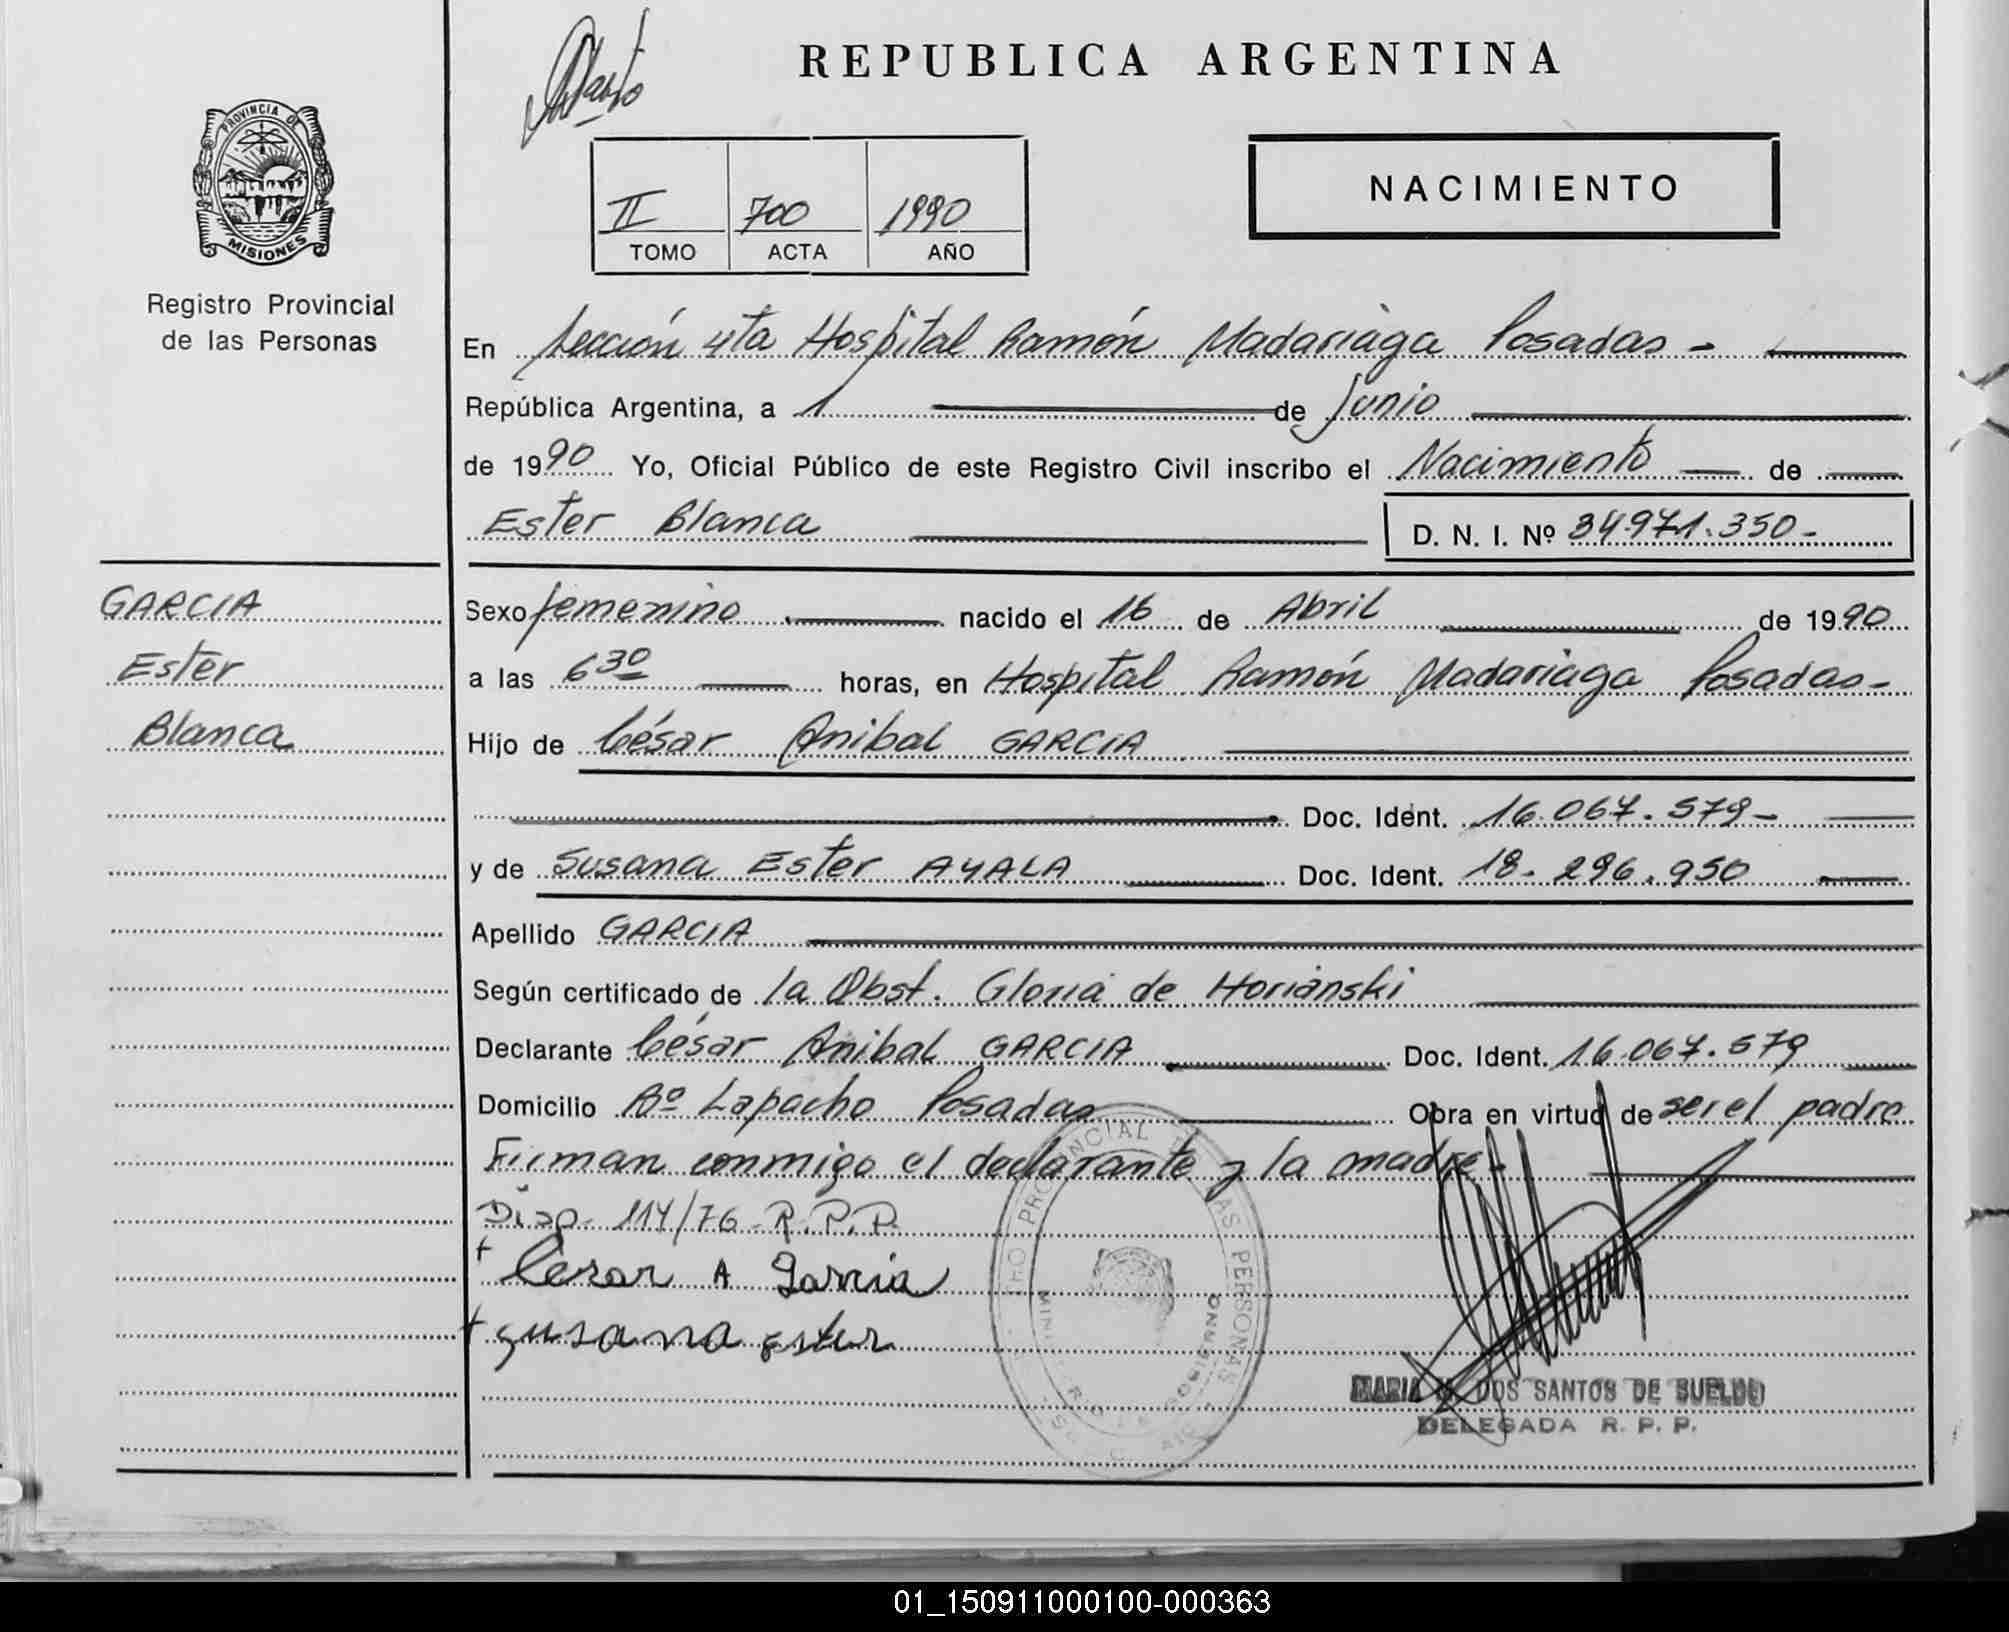 REPUBLICA ARGENTINA
PROVINCIA DE
MISIONES
Registro Provincial
de las Personas
II 700 1990
TOMO ACTA AÑO
NACIMIENTO
En Sección 4ta Hospital Ramón Madariaga Posadas -
República Argentina, a 1 de Junio
de 1990 Yo, Oficial Público de este Registro Civil inscribo el Nacimiento de
Ester Blanca D. N. I. Nº 34.971.350-
GARCIA
Ester
Blanca
Sexo femenino nacido el 16 de Abril de 1990
a las 6 30 horas, en Hospital Ramón Madariaga Posadas-
Hijo de César Anibal GARCIA
Doc. Ident. 16.067.579-
y de Susana Ester AYALA Doc. Ident. 18.296.950
Apellido GARCIA
Según certificado de la Obst. Gloria de Horianski
Declarante César Anibal GARCIA Doc. Ident. 16.067.579
Domicilio Bº Lapacho Posadas Obra en virtud de ser el padre
Firman conmigo el declarante y la madre-
Disp. 114/76 R.P.P.
+ Cesar A Garcia
+ susana ester
MARIA DOS SANTOS DE SUELDO
DELEGADA R. P. P.
01_150911000100-000363